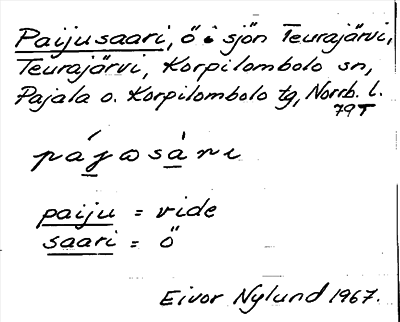 Paijusaari, ö i sjön Teurajärvi,
Teurajärvi, Korpilombolo sn,
Pajala o. Korpilombolo tg, Norrb. l.
79T
paiju = vide
saari = ö
Eivor Nylund 1967.